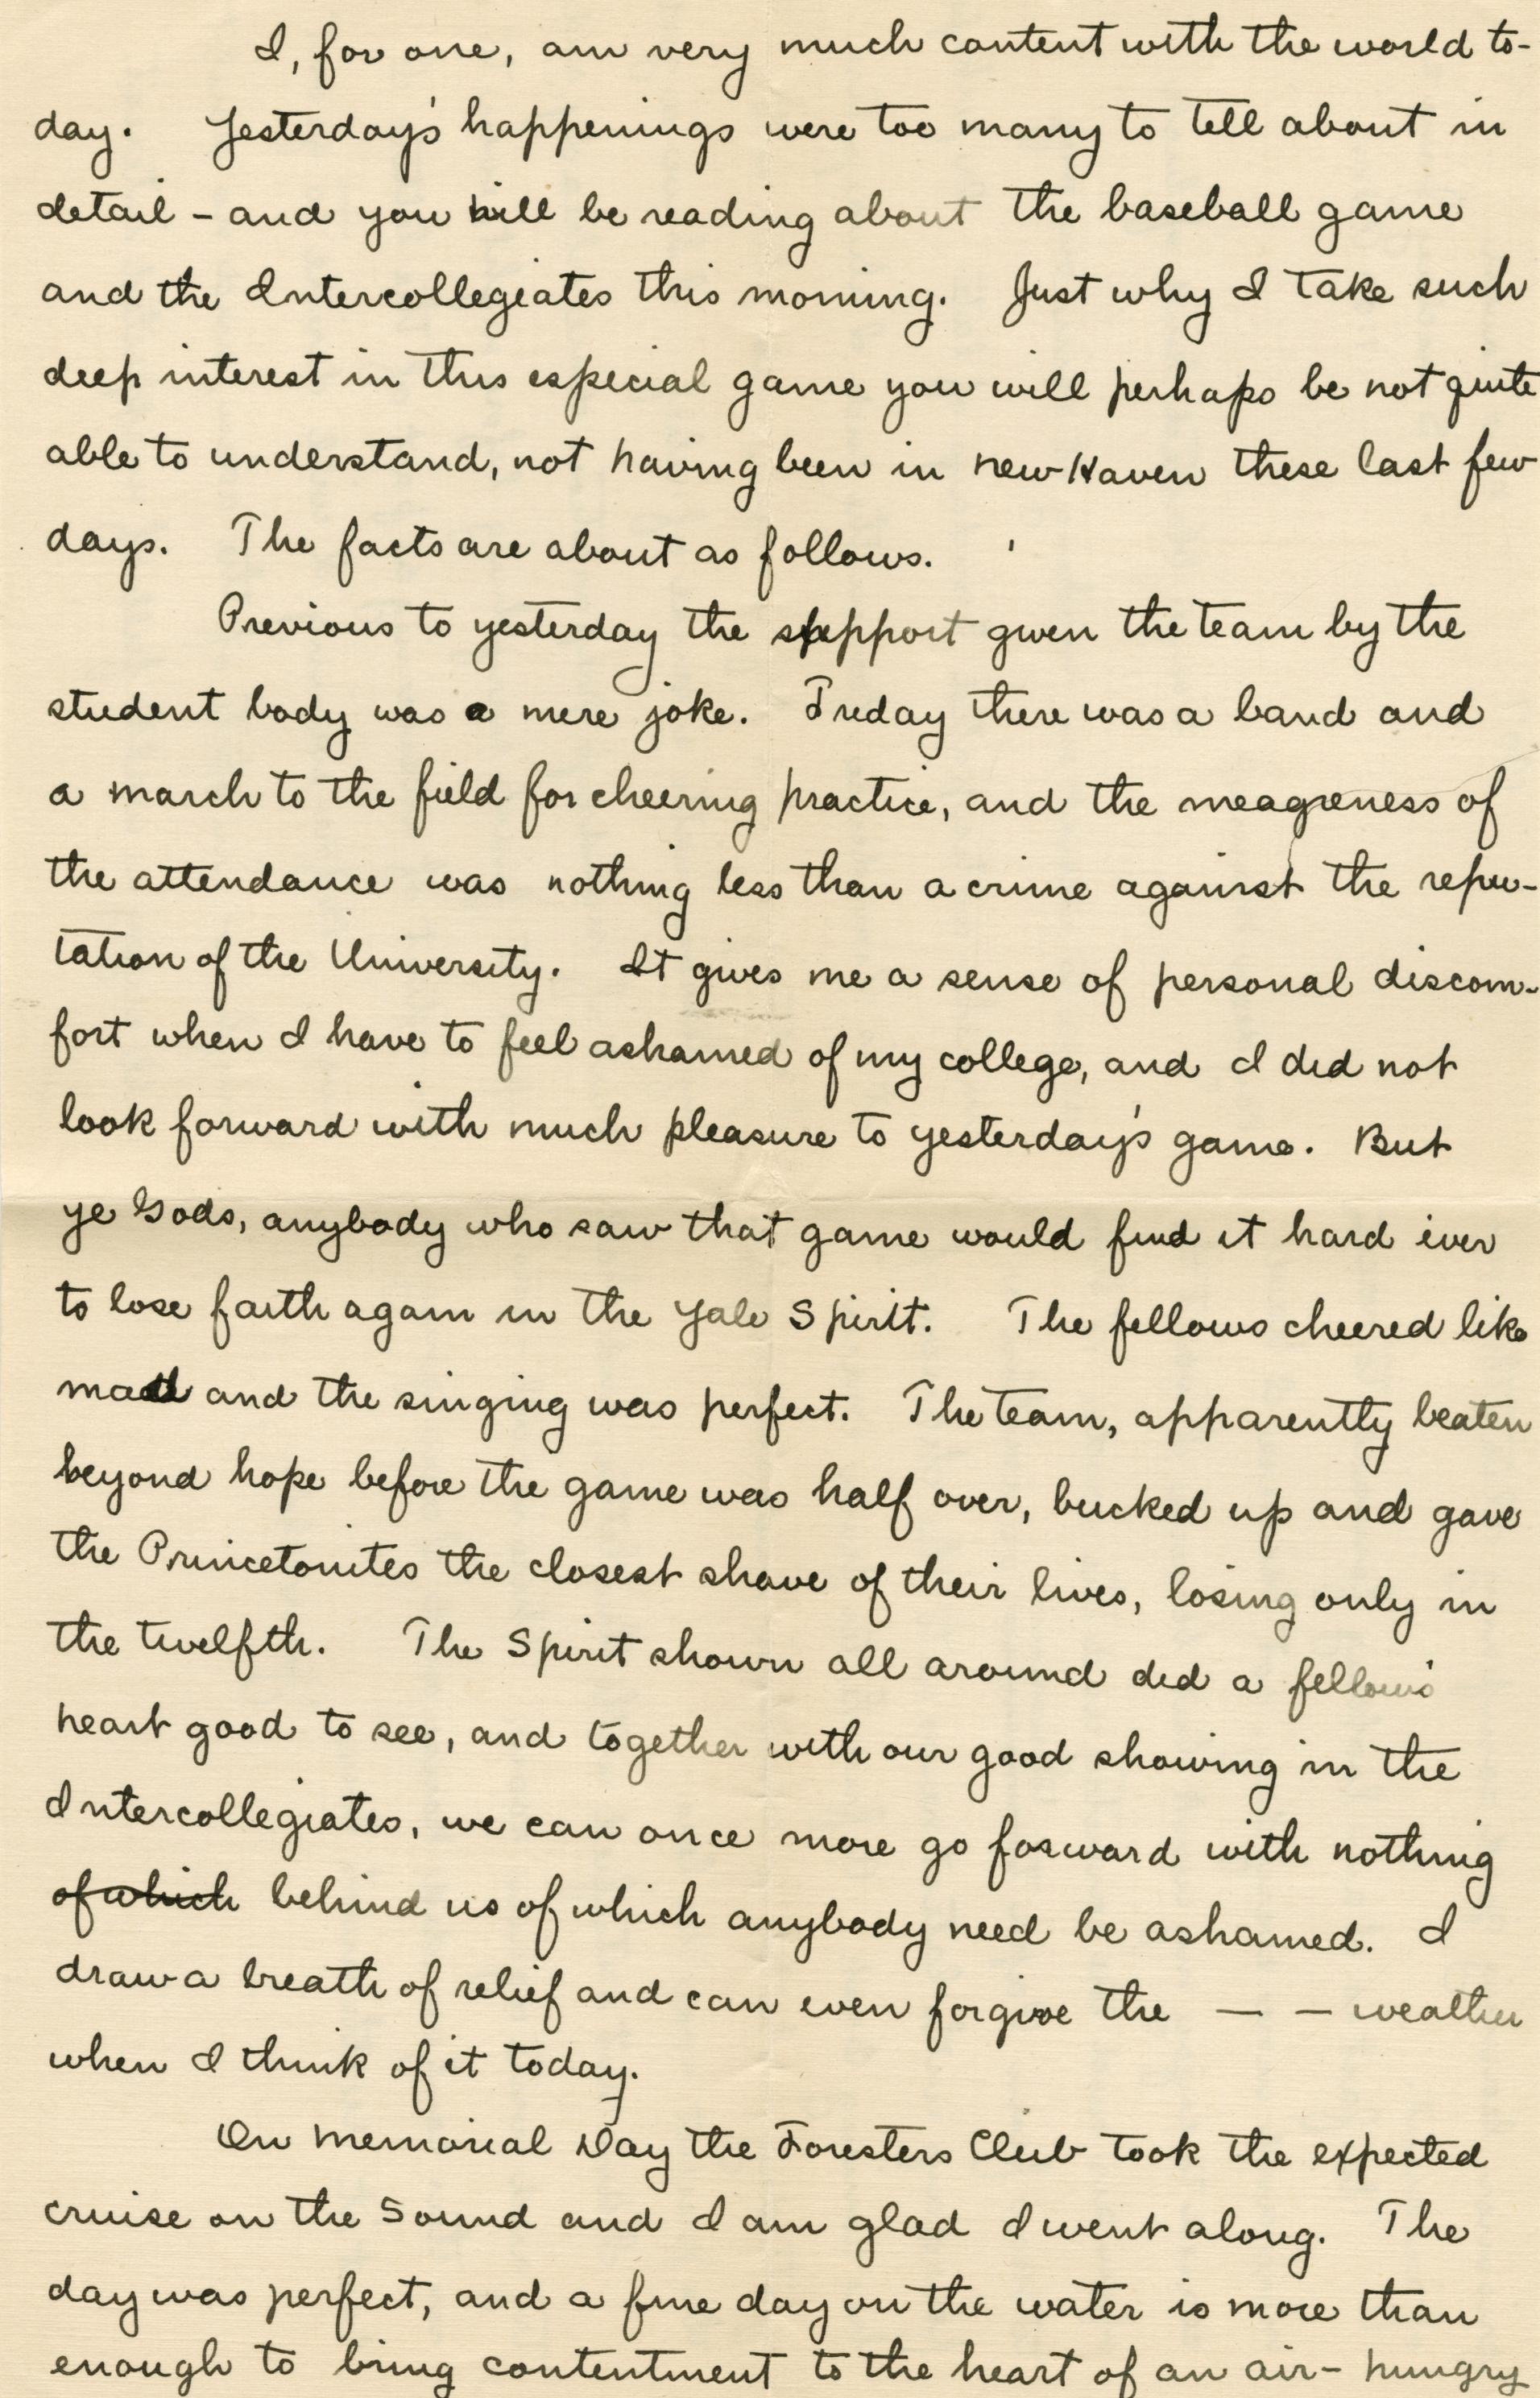 I, for one, am very much content with the world to-
day. Yesterday's happenings were too many to tell about in
detail - and you will be reading about the baseball game
and the Intercollegiates this morning. Just why I take such
deep interest in this especial game you will perhaps be not quite
able to understand, not having been in New Haven these last few
days. The facts are about as follows.
Previous to yesterday the support given the team by the
student body was a mere joke. Friday there was a band and
a march to the field for cheering practice, and the meagreness of
the attendance was nothing less than a crime against the repu-
tation of the University. It gives me a sense of personal discom-
fort when I have to feel ashamed of my college, and I did not
look forward with much pleasure to yesterday's game. But
ye Gods, anybody who saw that game would find it hard ever
to lose faith again in the Yale Spirit. The fellows cheered like
mad and the singing was perfect. The team, apparently beaten
beyond hope before the game was half over, bucked up and gave
the Princetonites the closest shave of their lives, losing only in
the twelfth. The Spirit shown all around did a fellow's
heart good to see, and together with our good showing in the
Intercollegiates, we can once more go forward with nothing
of which behind us of which anybody need be ashamed. I
draw a breath of relief and can even forgive the — — weather
when I think of it today.
On Memorial Day the Foresters Club took the expected
cruise on the Sound and I am glad I went along. The
day was perfect, and a fine day on the water is more than
enough to bring contentment to the heart of an air-hungry